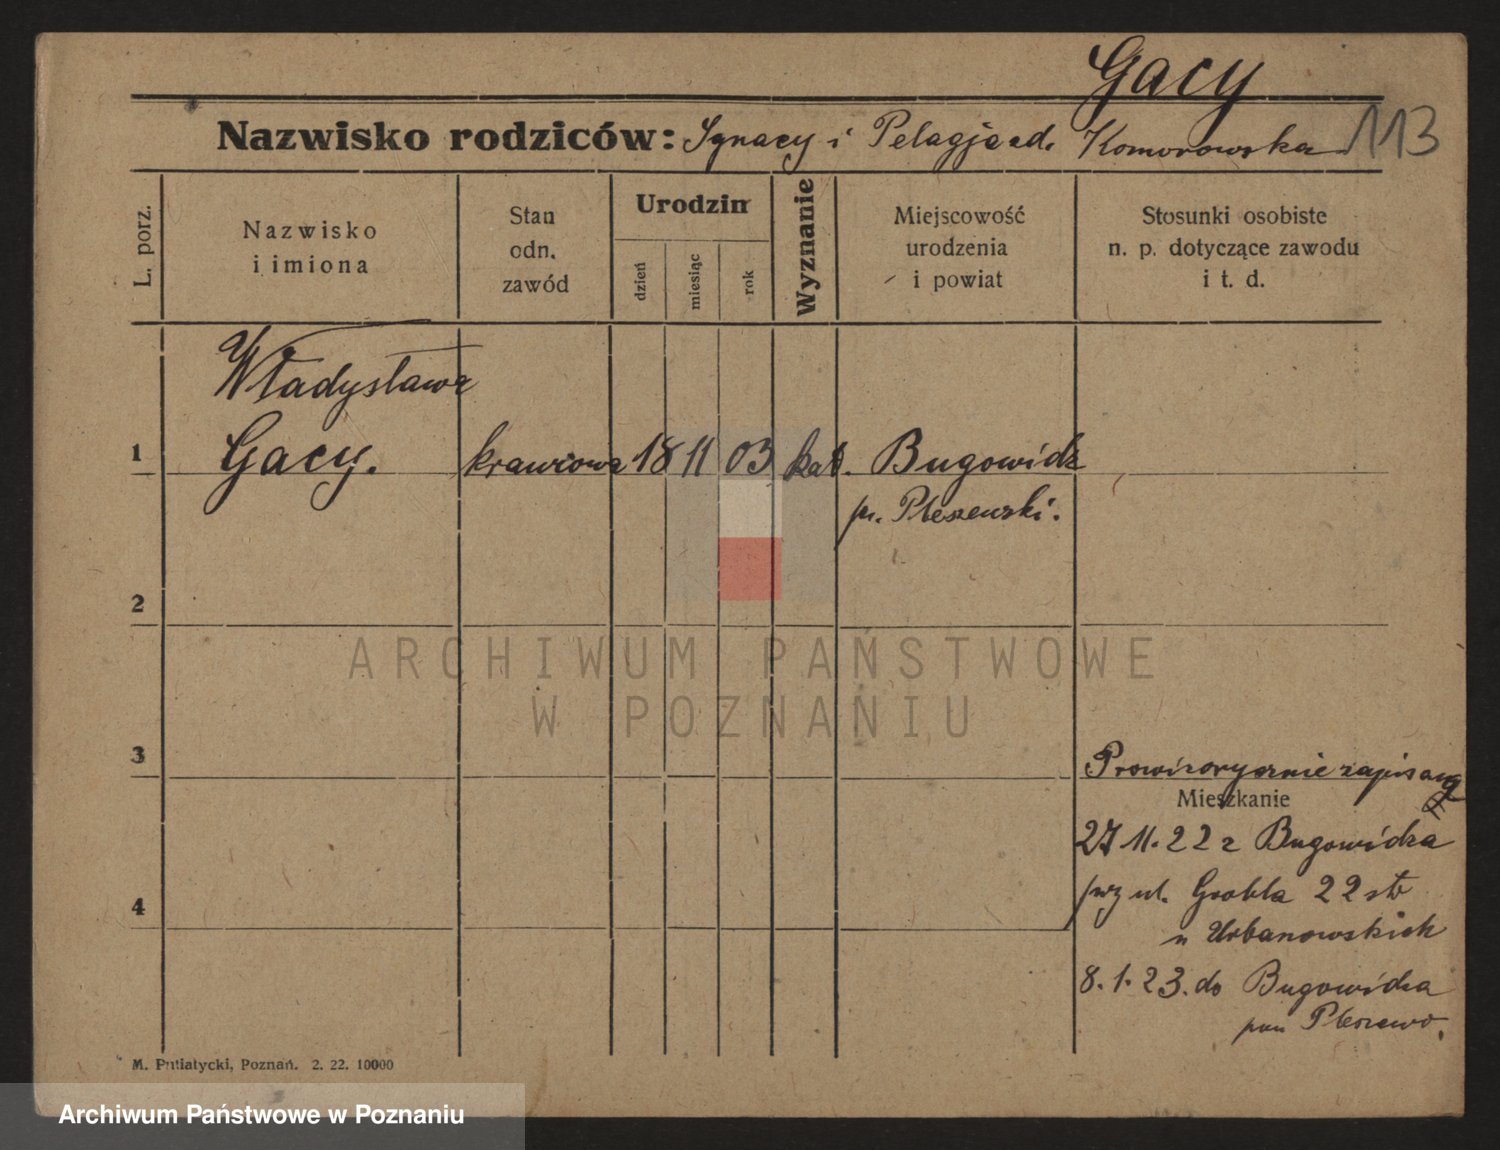 Gacy
Nazwisko rodziców: Ignacy i Pelagja zd. Komorowska 113
L. porz.
Nazwisko
i imiona
Stan
odn.
zawód
Urodzin
dzień
miesiąc
rok
Wyznanie
Miejscowość
urodzenia
i powiat
Stosunki osobiste
n. p. dotyczące zawodu
i t. d.
Władysława
1 Gacy. krawcowa 18 11 03 kat. Bugowidz
p. Pleszewski.
2
ARCHIWUM PAŃSTWOWE
W POZNANIU
3
Prowizorycznie zapisaną
Mieszkanie
27 11. 22 z Bugowidza
przy ul. Grobla 22 
4
u Urbanowskich
8. 1. 23. do Bugowidza
pow Pleszewo.
M. Putiatycki, Poznań. 2. 22. 10000
Archiwum Państwowe w Poznaniu